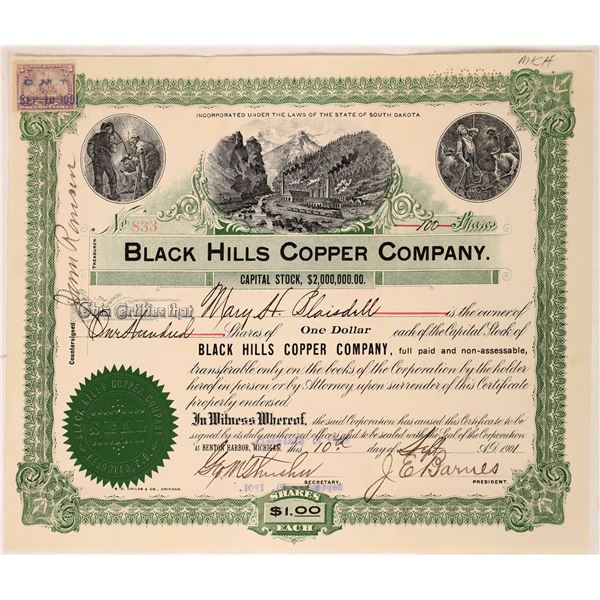 MKH
C. M. T.
INCORPORATED UNDER THE LAWS OF THE STATE OF SOUTH DAKOTA
No 833
100 Shares
BLACK HILLS COPPER COMPANY.
CAPITAL STOCK, $2,000,000.00.
This Certifies that Mary H. Blaisdell is the owner of
One Hundred Shares of One Dollar each of the Capital Stock of
BLACK HILLS COPPER COMPANY, full paid and non-assessable,
transferable only on the books of the Corporation by the holder
hereof in person or by Attorney, upon surrender of this Certificate
properly endorsed.
In Witness Whereof, the said Corporation has caused this Certificate to be
signed by its duly authorized officers and to be sealed with the Seal of the Corporation
at BENTON HARBOR, MICHIGAN, this 10th day of Sept A.D. 1901
J. E. Barnes
SECRETARY.
PRESIDENT.
Countersigned
TREASURER
BLACK HILLS COPPER COMPANY
SEAL
& CO., CHICAGO.
SHARES
$1.00
EACH